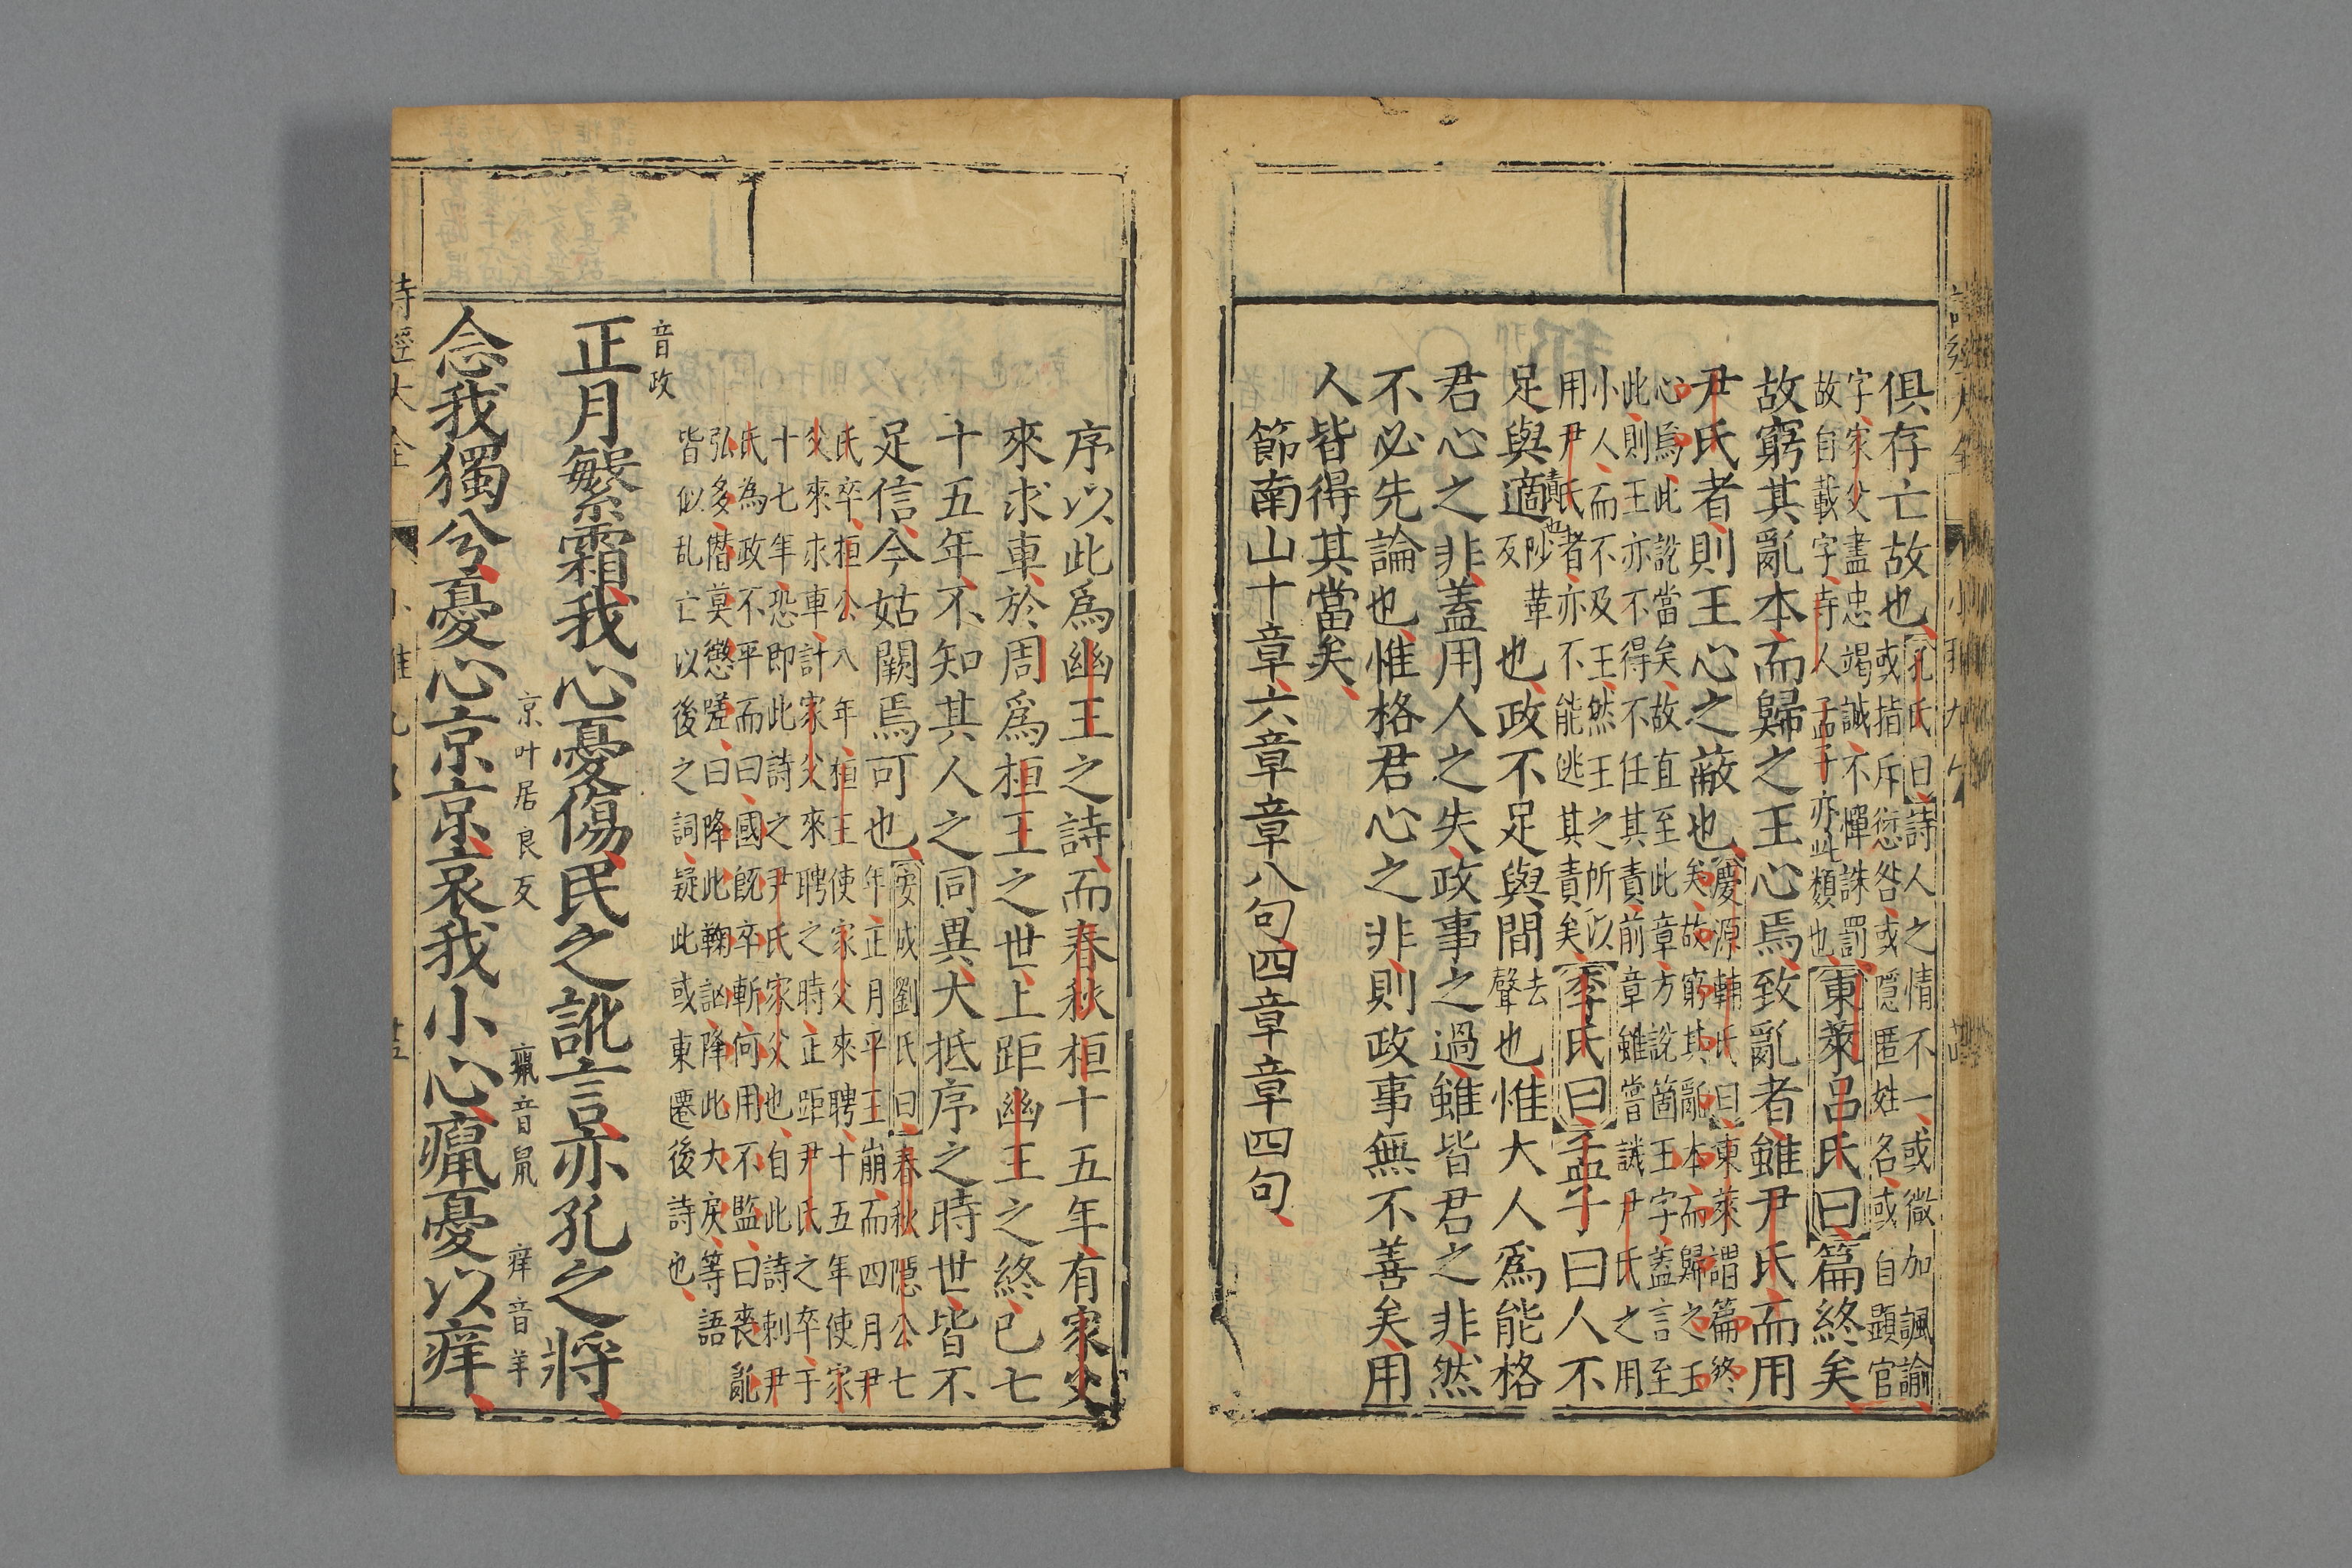 俱存亡故也孔氏曰詩人之情不一或微加諷諭
或指斥愆咎或隱匿姓名或自顯官
字家父盡忠竭誠不憚誅罰
故自載字寺人孟子亦此類也東萊呂氏曰篇終矣
故窮其亂本而歸之王心焉致亂者雖尹氏而用
尹氏者則王心之蔽也慶源輔氏曰東萊謂篇終
矣故窮其亂本而歸之王
心焉此說當矣故直至此章方說箇王字蓋言至
此則王亦不得不任其責前章雖嘗譏尹氏之用
小人而不及王然王之所以
用尹氏者亦不能逃其責矣李氏曰孟子曰人不
足與適責也陟革反也政不足與間去聲也惟大人爲能格
君心之非蓋用人之失政事之過雖皆君之非然
不必先論也惟格君心之非則政事無不善矣用
人皆得其當矣
節南山十章六章章八句四章章四句
序以此爲幽王之詩而春秋桓十五年有家父
來求車於周爲桓王之世上距幽王之終已七
十五年不知其人之同異大抵序之時世皆不
足信今姑闕焉可也安成劉氏曰春秋隱公七
年正月平王崩而四月尹
氏卒桓公八年桓王使家父來聘十五年使家
父來求車計家父來聘之時正距尹氏之卒于
十七年恐即此詩之尹氏家父也自此詩刺尹
氏為政不平而曰國旣卒斬何用不監曰喪亂
弘多憯莫懲嗟曰降此鞠訩降此大戾等語
皆似乱亡以後之詞疑此或東遷後詩也
音政
正月繁霜我心憂傷民之訛言亦孔之將
京叶居良反 瘋音鼠 痒音羊
念我獨兮憂心京京哀我小心癙憂以痒
詩經大全 小雅